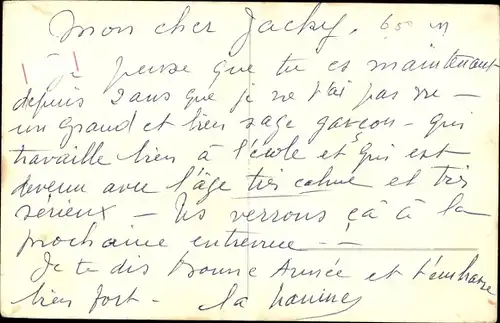 Mon cher Jacky.
Je pense que tu es maintenant
depuis 2 ans que je ne t'ai pas vu -
un grand et bien sage garçon - qui
travaille bien à l'école et qui est
devenu avec l'âge très calme et très
sérieux - Ns verrons çà à la
prochaine entrevue - -
Je te dis Bonne Année et t'embrasse
bien fort - la